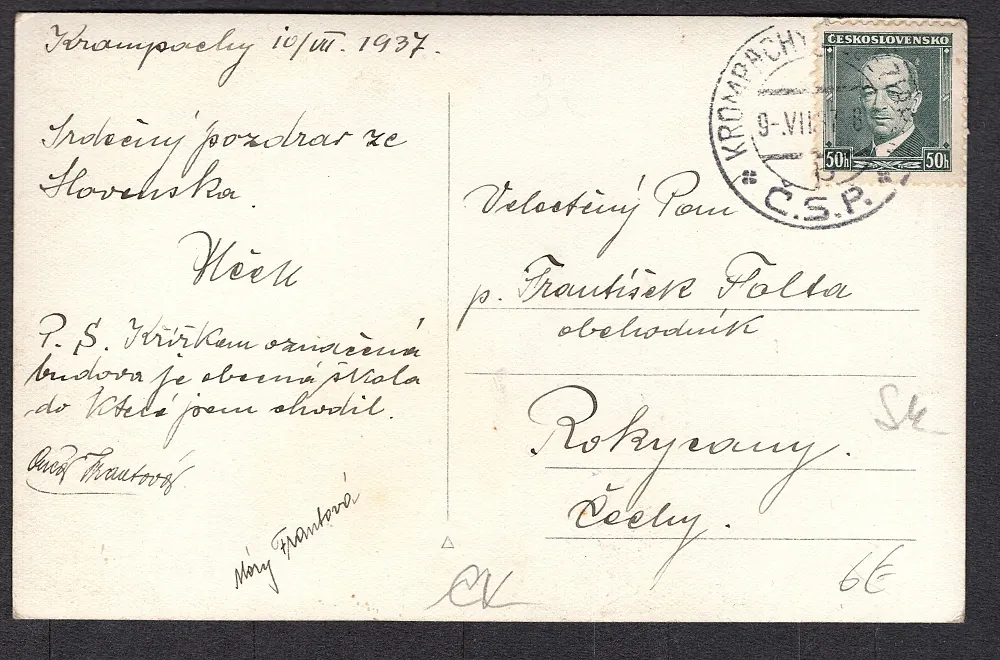 Krompachy 10/VII. 1937.
Srdečný pozdrav ze
Slovenska.
Vlček
P. S. Křížkem označená
budova je obecná škola
do které jsem chodil.
Frantová
Frantová
KROMPACHY
9-.VII.
Č.S.P.
ČESKOSLOVENSKO
50h 50h
Velectěný Pan
p. František Folta
obchodník
Rokycany.
Čechy.
Sk
ČV
6€